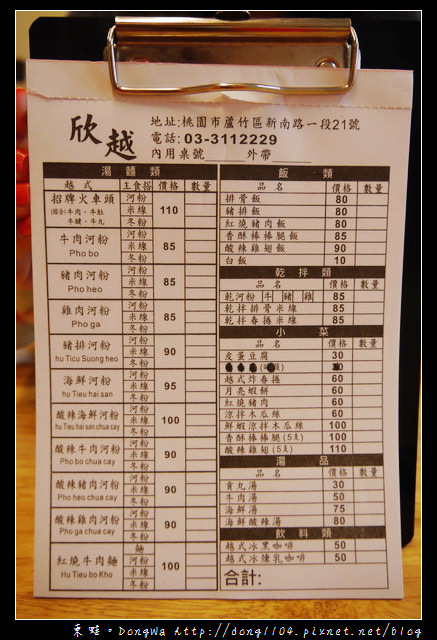 欣越
地址:桃園市蘆竹區新南路一段21號
電話: 03-3112229
內用桌號 外帶
湯麵類
越式 主食搭 價格 數量
招牌火車頭 河粉 米線 冬粉 110
(綜合)牛肉、牛肚
牛腱、牛丸
牛肉河粉 河粉 米線 冬粉 85
Pho bo
豬肉河粉 河粉 米線 冬粉 85
Pho heo
雞肉河粉 河粉 米線 冬粉 85
Pho ga
豬排河粉 河粉 米線 冬粉 90
hu Ticu Suong heo
海鮮河粉 河粉 米線 冬粉 95
hu Tieu hai san
酸辣海鮮河粉 河粉 米線 冬粉 100
hu Tieu hai san chua cay
酸辣牛肉河粉 河粉 米線 冬粉 90
Pho bo chua cay
酸辣豬肉河粉 河粉 米線 冬粉 90
Pho heo chua cay
酸辣雞肉河粉 河粉 米線 冬粉 90
Pho ga chua cay
紅燒牛肉麵 麵 河粉 米線 冬粉 100
Hu Tieu bo Kho
飯類
品名 價格 數量
排骨飯 80
豬排飯 80
紅燒豬肉飯 80
香酥棒棒腿飯 85
酸辣雞翅飯 90
白飯 10
乾拌類
品名 價格 數量
乾河粉 牛 豬 雞 85
乾拌排骨米線 85
乾拌春捲米線 85
小菜
品名 價格 數量
皮蛋豆腐 30
越式炸春捲 60
月亮蝦餅 60
紅燒豬肉 60
涼拌木瓜絲 60
鮮蝦涼拌木瓜絲 100
香酥棒棒腿(5支) 100
酸辣雞翅(5支) 110
湯品
品名 價格 數量
貢丸湯 30
牛肉湯 50
海鮮湯 75
海鮮酸辣湯 80
飲料類
越式冰黑咖啡 50
越式冰煉乳咖啡 50
合計:
東蛙。DongWa http://dong1104.pixnet.net/blog